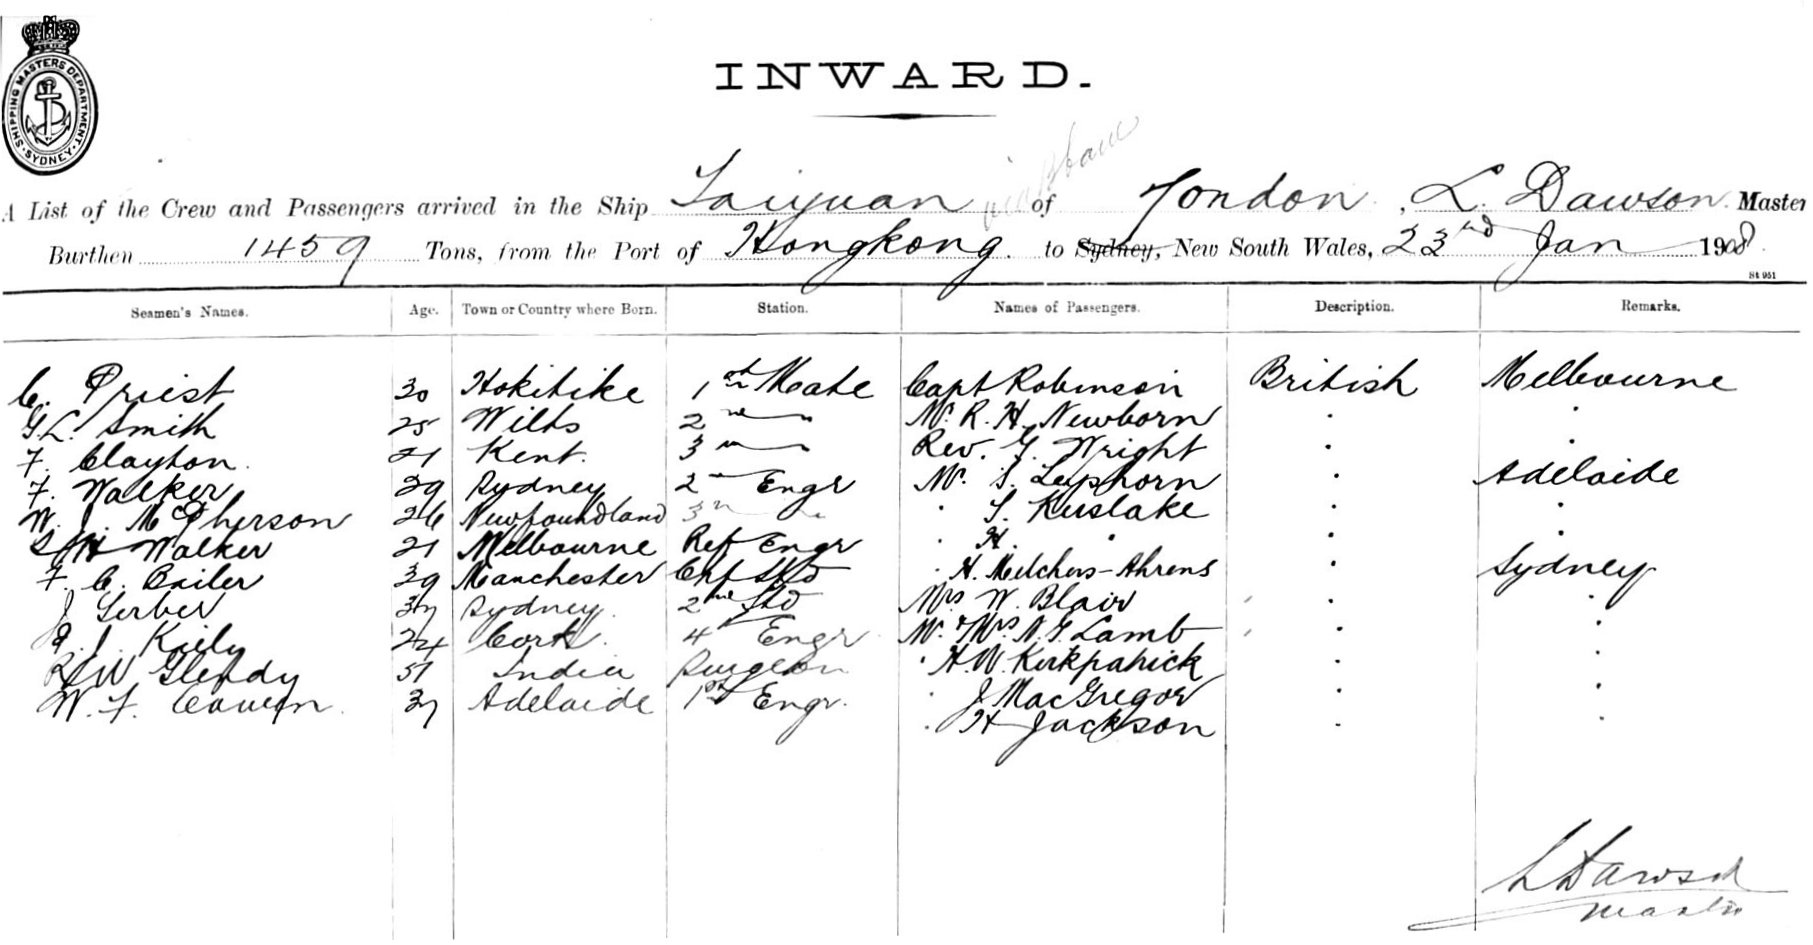 SHIPPING MASTERS DEPARTMENT. SYDNEY.
INWARD.
A List of the Crew and Passengers arrived in the Ship Taiyuan of London, L. Dawson Master
Burthen 1459 Tons, from the Port of Hongkong. to Sydney, New South Wales, 23rd Jan 1908.
St 951
Seamen's Names. Age. Town or Country where Born. Station. Names of Passengers. Description. Remarks.
C. Priest 30 Hokitike 1st Mate Capt Robinson British Melbourne
G.L. Smith 25 Wilts 2 Mr. R. H. Newborn
F. Clayton. 21 Kent. 3 Rev. G. Wright
F. Walker 29 Sydney 2 Engr Mr. S. Adelaide
W. J. McPherson 26 Newfoundland 3 " S. Kuslake
Walker 21 Melbourne Ref Engr " H. "
F. C. 39 Manchester Chf Std " H. Melchers-Ahrens Sydney
J Gerber 37 Sydney. 2nd Std Mrs W. Blair
J. Kiely 24 Cork. 4 Engr Mr & Mrs N. G Lamb
Glendy 57 India Surgeon " H. W. Kirkpatrick
W. F. 37 Adelaide 1st Engr. " J MacGregor
" H Jackson
L Dawson
Master